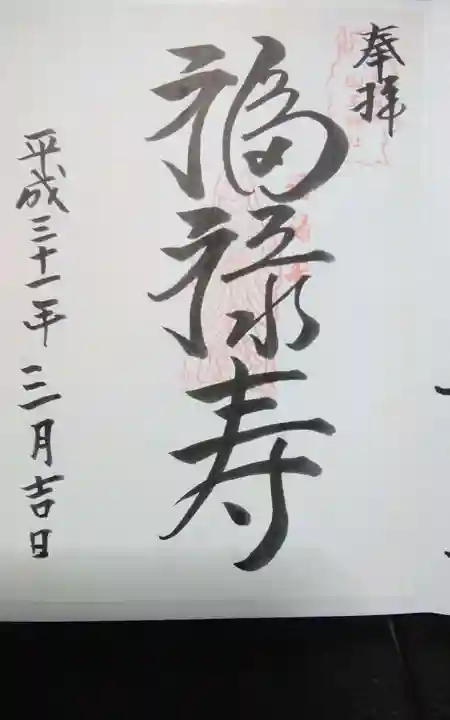 奉拝
福禄寿
平成三十一年三月吉日